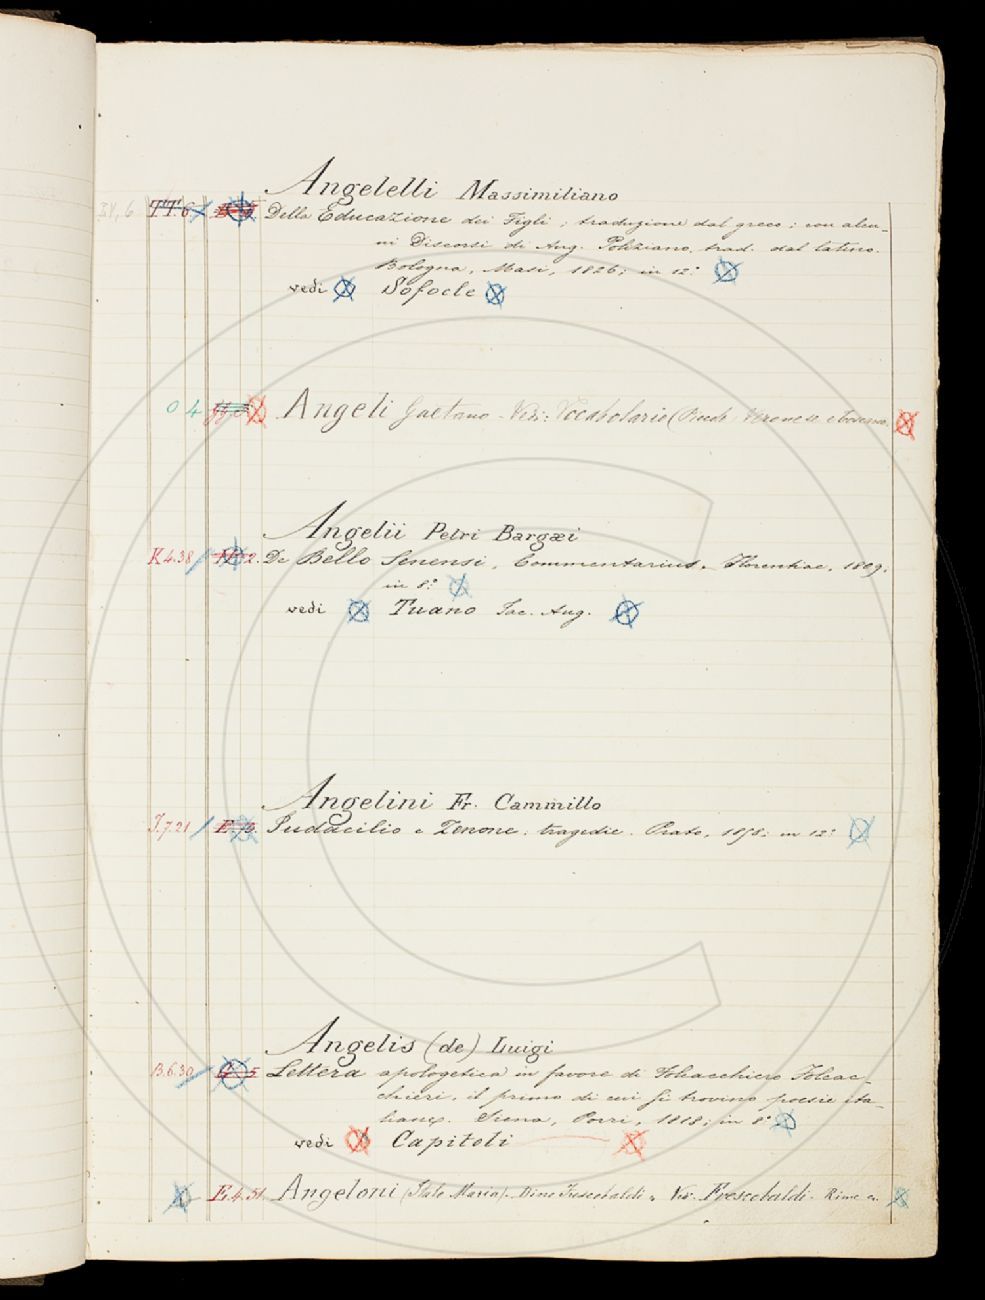 Angelelli Massimiliano
TT.6 Della Educazione dei Figli; traduzione dal greco; con alcu-
ni Discorsi di Ang. Poliziano, trad. dal latino.
Bologna, Masi, 1826; in 12.°
vedi Sofocle
0 4 Angeli Gaetano - Vedi: Vocabolario
Angelii Petri Bargæi
K.4.38 De Bello Senensi, Commentarius. Florentiae, 1809.
in 8.°
vedi Tuano Jac. Aug.
Angelini Fr. Cammillo
J.7.21 Pudacilio e Zenone, tragedie. Prato, 1858; in 12.°
Angelis (de) Luigi
B.6.30 Lettera apologetica in favore di Folcacchiero Folcac-
chieri, il primo di cui si trovino poesie ita-
liane. Siena, Porri, 1818; in 8.°
vedi Capitoli
E.4.51. Angeloni (Italo Maria). Dino Frescobaldi. Ved. Frescobaldi. Rime